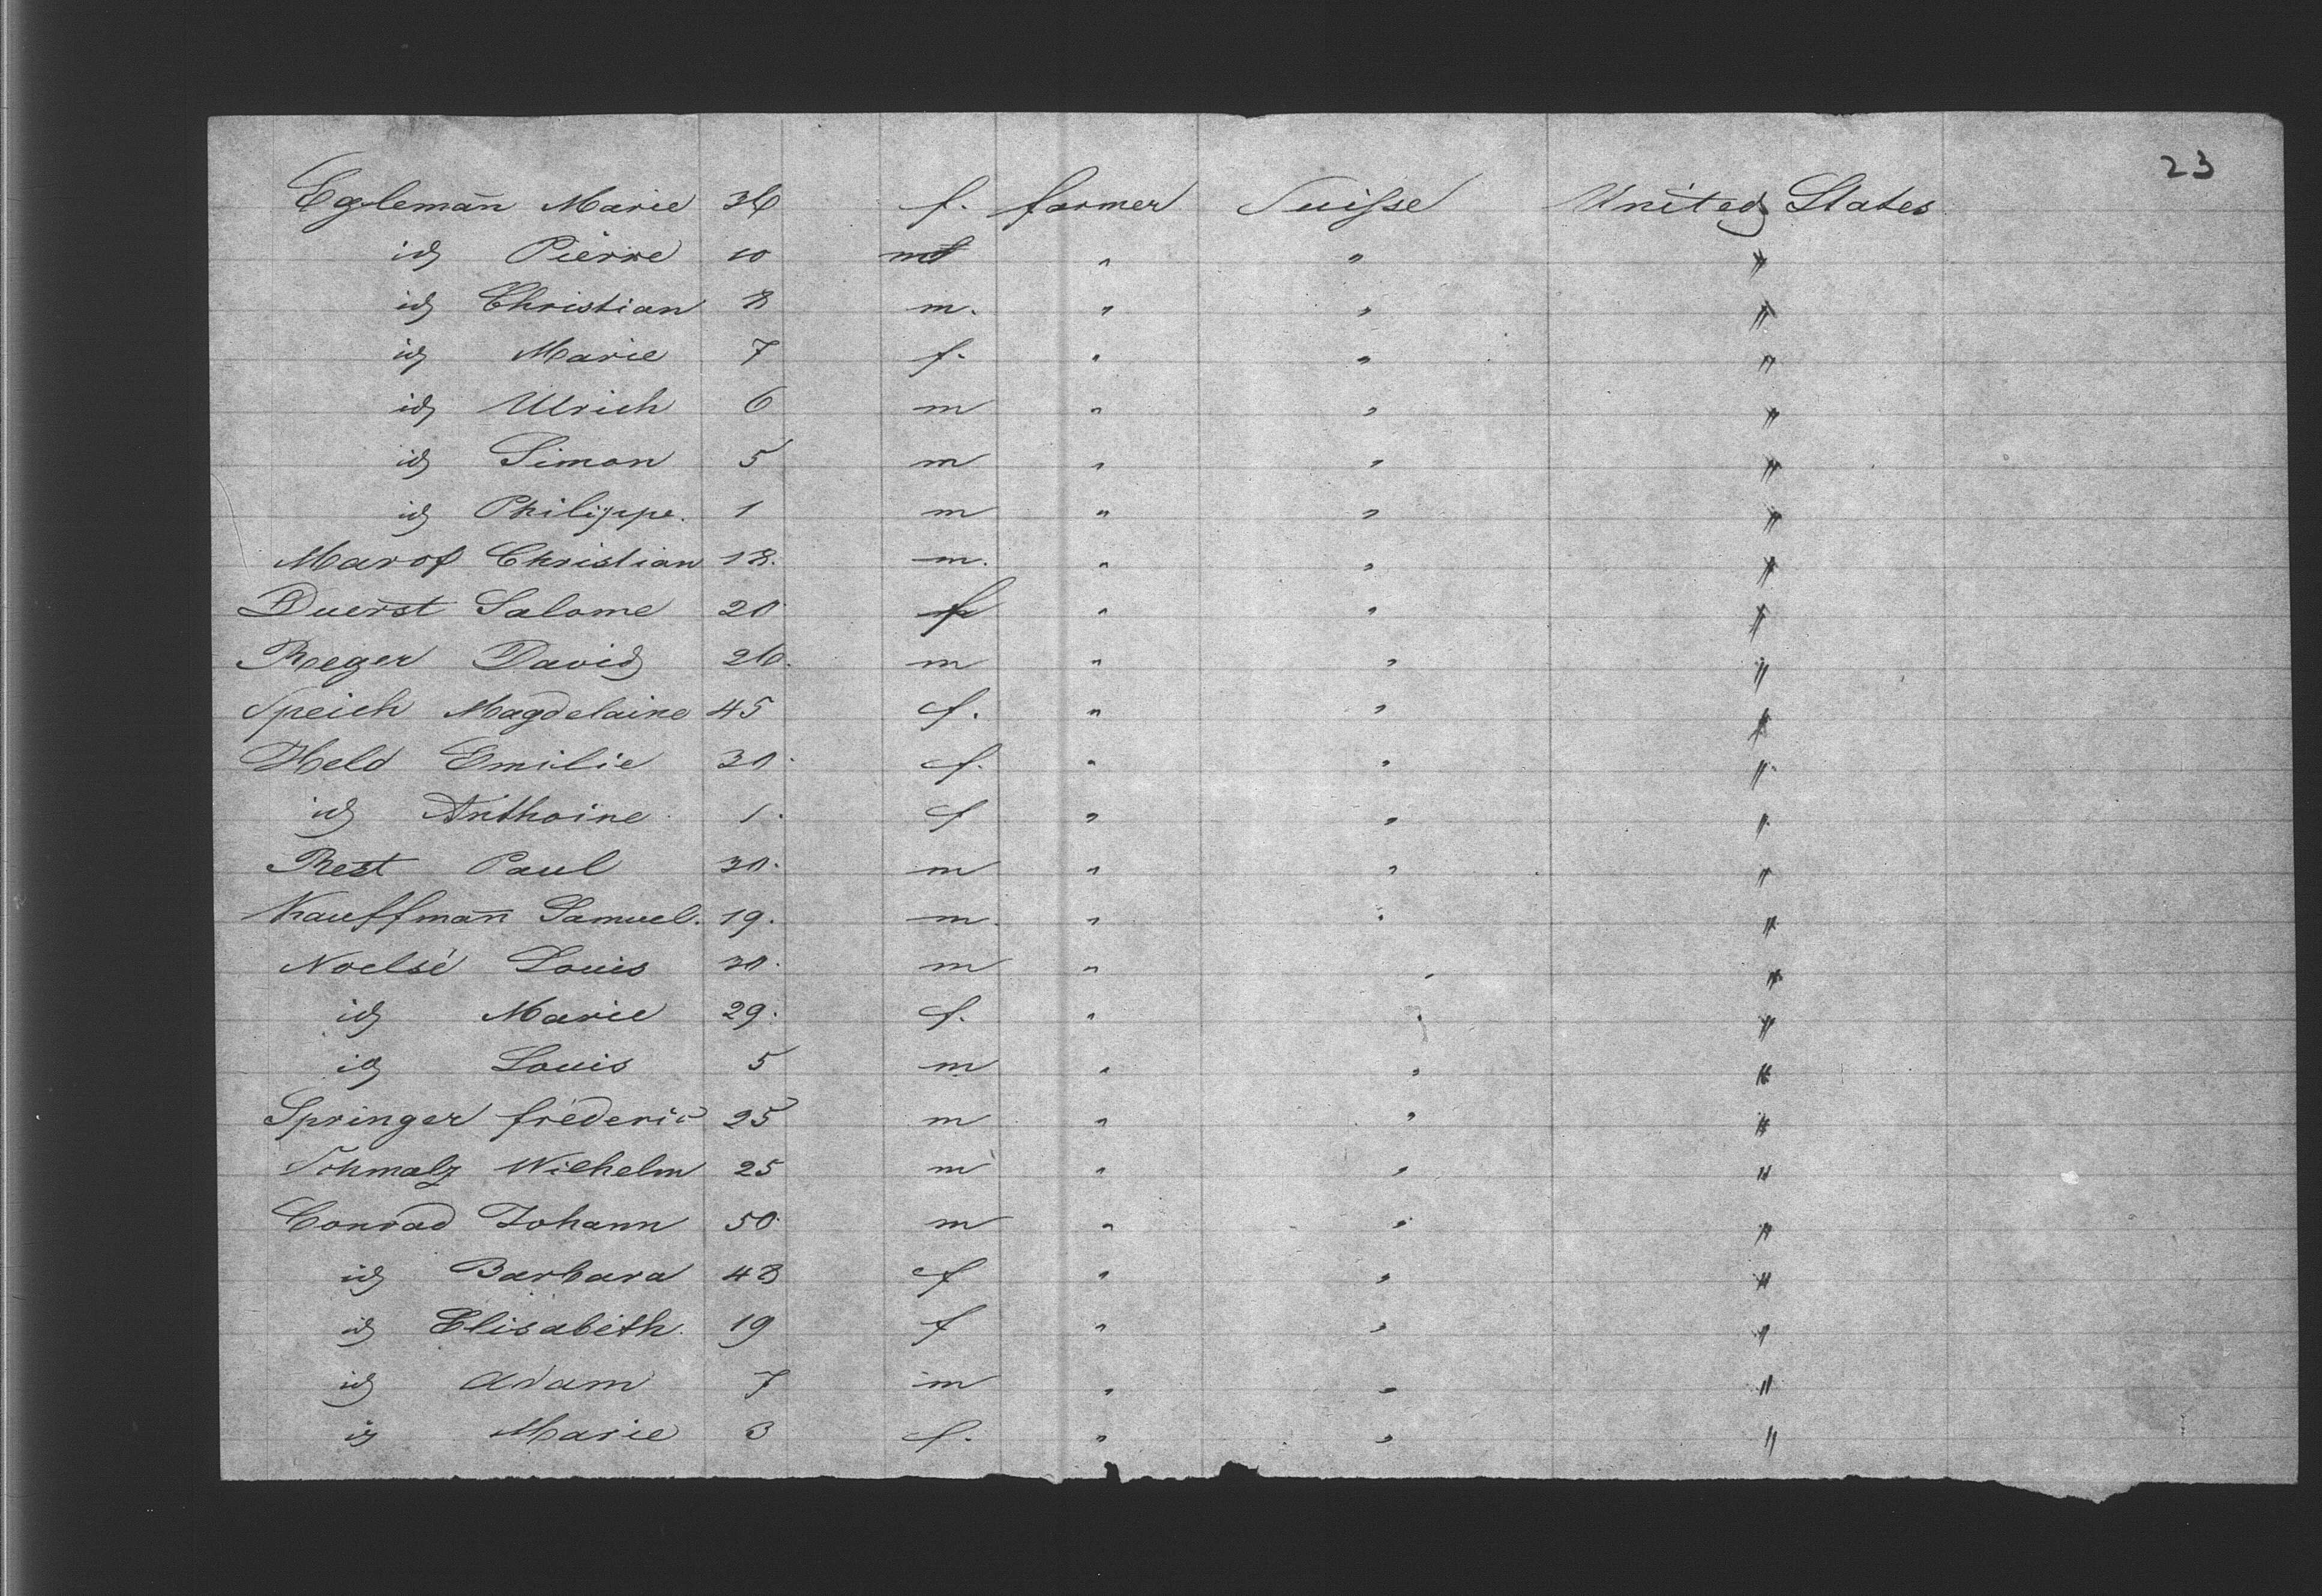 23
Eglemañn Marie 36 f. farmer Suisse United States
id Pierre 10 m " " "
id Christian 8 m. " " "
id Marie 7 f. " " "
id Ulrich 6 m " " "
id Simon 5 m " " "
id Philippe. 1 m " " "
Marof Christian 18. m. " " "
Duerst Salome 20 f " " "
Reger David 26. m " " "
Speich Magdelaine 45 f. " " "
Held Emilie 30. f. " " "
id Anthoine 1. f " " "
Rest Paul 30. m " " "
Kauffmañn Samuel. 19. m. " " "
Noelsé Louis 30. m " " "
id Marie 29. f. " " "
id Louis 5 m " " "
Springer fréderic 25 m " " "
Schmalz Wilhelm 25 m " " "
Conrad Johann 50. m " " "
id Barbara 48 f " " "
id Elisabeth. 19 f " " "
id Adam 7 m " " "
id Marie 3 f. " " "